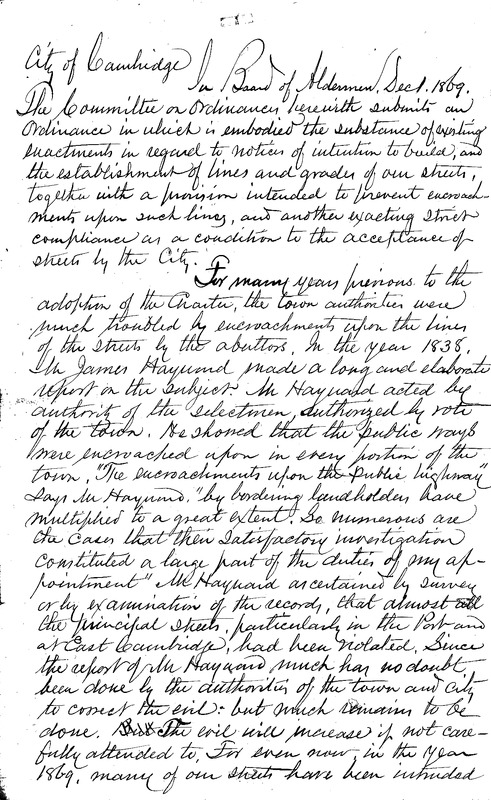 City of Cambridge
In Board of Aldermen, Dec 1. 1869.
The Committee on Ordinances herewith submits an
Ordinance in which is embodied the substance of existing
enactments in regard to notices of intention to build, and
the establishment of lines and grades of our streets,
together with a provision intended to prevent encroach-
ments upon such lines, and another exacting strict
compliance as a condition to the acceptance of
streets by the City.
For many years previous to the
adoption of the Charter, the town authorities were
much troubled by encroachments upon the lines
of the streets by the abuttors. In the year 1838.
Mr James Hayward made a long and elaborate
report on the subject. Mr Hayward acted by
authority of the selectmen, authorized by vote
of the town. He showed that the public ways
were encroached upon in every portion of the
town. "The encroachments upon the public highway"
says Mr Hayward, "by bordering landholders have
multiplied to a great extent. So numerous are
the cases that their satisfactory investigation
constituted a large part of the duties of my ap-
pointment" Mr Hayward ascertained by survey
or by examination of the records, that almost all
the principal streets, particularly in the Port and
at East Cambridge, had been violated. Since
the report of Mr Hayward much has no doubt
been done by the authorities of the town and City
to correct the evil: but much remains to be
done. But The evil will increase if not care-
fully attended to. For even now, in the year
1869, many of our streets have been intruded